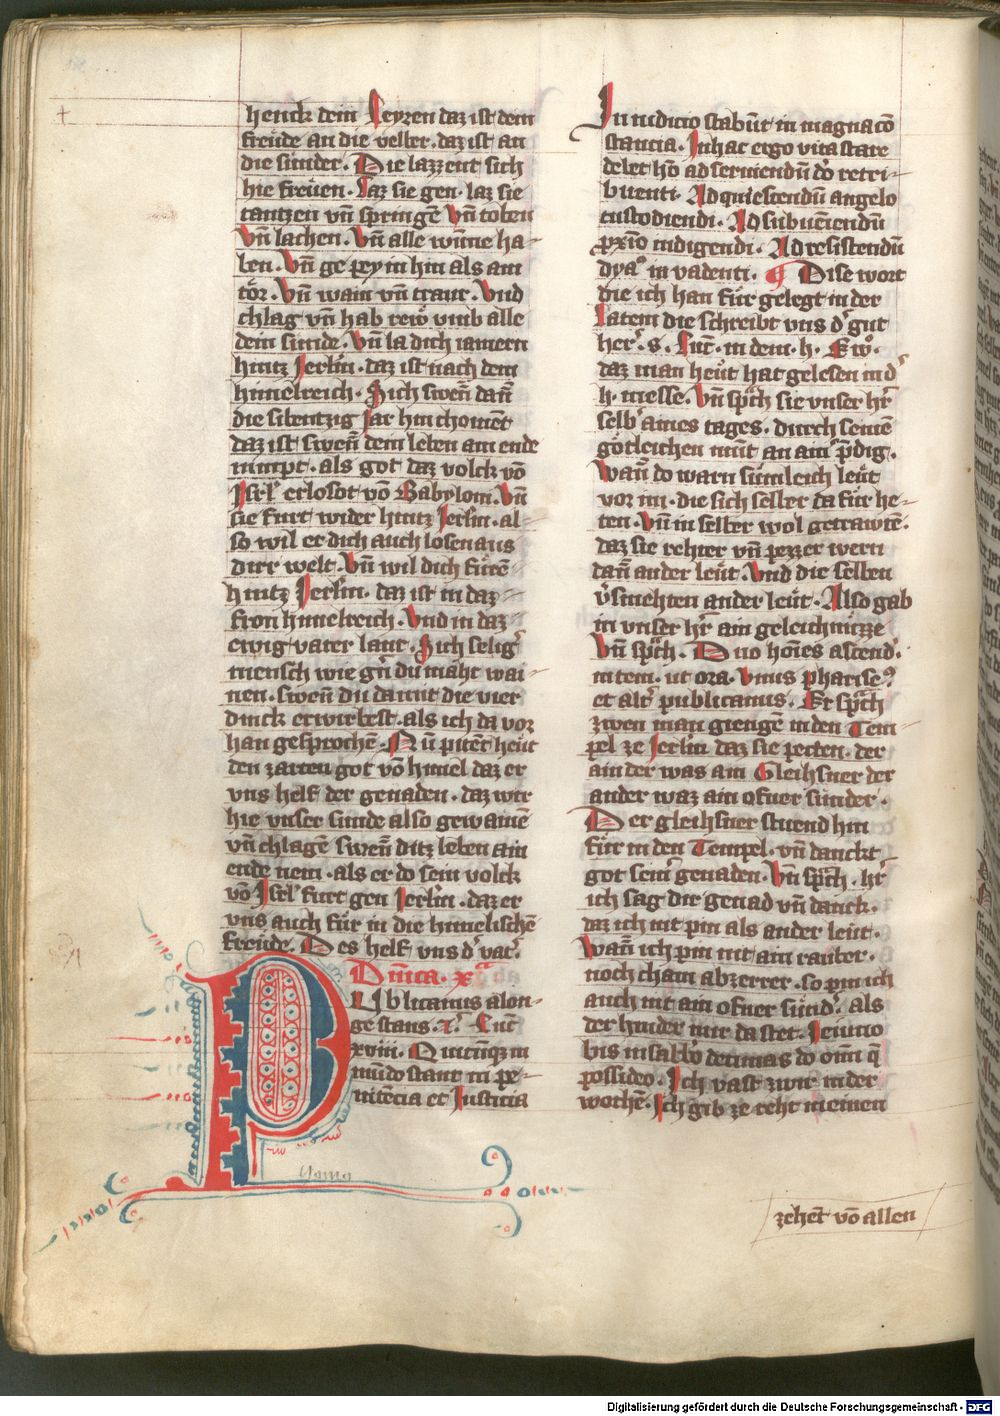 henck dein Leyren daz ist dein
freude an die velber. daz ist an
die sunder. Die lazzent sich
hie freuen. Laz sie gen. laz sie
tantzen vn̄ springē vn̄ toben
Vn̄ lachen. Vn̄ alle wūne ha-
ben. Vn̄ ge pey in hin als ain
tor. Vn̄ wain vn̄ traur. Vnd
chlag vn̄ hab rew vmb alle
dein sunde. Vn̄ la dich iamern
hintz Jerlm̄. daz ist nach dem
himelreich. Sich swen̄ dan̄
die sibentzig Jar hin choment
daz ist swen̄ dein leben ain ende
nimpt. als got daz volck vō
Isrl' erlosot vō Babyloni. Vn̄
sie furt wider hintz Jerlm̄. al-
so wil er dich auch losen aus
dirr welt. Vn̄ wil dich furē
hintz Jerlm̄. daz ist in daz
fron himelreich. Vnd in daz
ewig vater lant. Sich selig'
mensch wie gn̄ du maht wai-
nen. swen̄ du da mit die vier
dinck erwirbest. als ich da vor
han gesprochē. Nu pitet heut
den zarten got vō himel daz er
vns helf der genaden. daz wir
hie vnser sunde also gewainē
vn̄ chlagē swen̄ ditz leben ain
ende nem. als er do sein volck
vō Isrl' furt gen Jerlm̄. daz er
vns auch fur in die himelischē
freude. Des helf vns d' vat'.
Dnīca. xᵃ
PVblicanus alon-
ge stans. τ'. Luc̄
xviii. Quicūqz in
mūdo stant in pe-
nitēcia et Justicia
In iudicio stabūt in magna cō
stancia. In hac ergo vita stare
debet hō ad seruiendū dō retri-
buenti. Ad quiescendū angelo
custodiendi. Ad subueniendū
pxīo indigendi. Ad resistendū
dyaᵒ in vadenti. ¶ Dise wort
die ich han fur gelegt in der
Latein die schreibt vns d' gut
her'. s. Luc̄. in dem. h. Ewᵒ.
daz man heut hat gelesen in d'
h. messe. Vn̄ sp̄ch sie vnser hr̄
selb' aines tages. durch seinē
gotleichen mūt an ain' p̄dig.
Wan̄ do warn sumleich leut
vor im. die sich selber da fur he-
ten. Vn̄ in selber wol getrawtē.
daz sie rehter vn̄ pezzer wern
dan̄ ander leut. Vnd die selben
v'smehten ander leut. Also gab
in vnser hr̄ ain geleichnizze
Vn̄ sp̄ch. Duo hoīes ascend'.
in tem. ut ora. Vnus pharise⁹
et alt' publicanus. Er sp̄ch
zwen man giengē in den Tem-
pel ze Jerlm̄ daz sie petten. der
ainder was ain Gleihsner der
ander waz ain ofner sunder.
Der gleihsner stuend hin
fur in den Tempel. vn̄ danckt
got sein' genaden. Vn̄ sp̄ch. hr̄
ich sag dir genad vn̄ danck.
daz ich nit pin als ander leut.
Wan̄ ich pin nit ain rauber.
noch chain abzerrer. so pin ich
auch nit ain ofner sund'. als
der hinder mir da stet. Jeiuno
bis in sabb'o decimas do om̄i q̄
possideo. Ich vast zwir in der
wochē. Ich gib ze reht meinen
zehēt vō allen
Digitalisierung gefördert durch die Deutsche Forschungsgemeinschaft - DFG